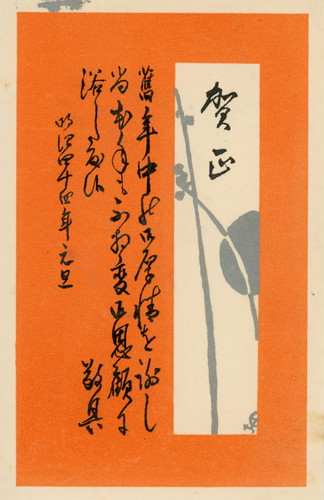 賀正
舊年中の御厚情を謝し
尚本年も不相変御恩顧に
浴し度候
敬具
明治四十四年元旦